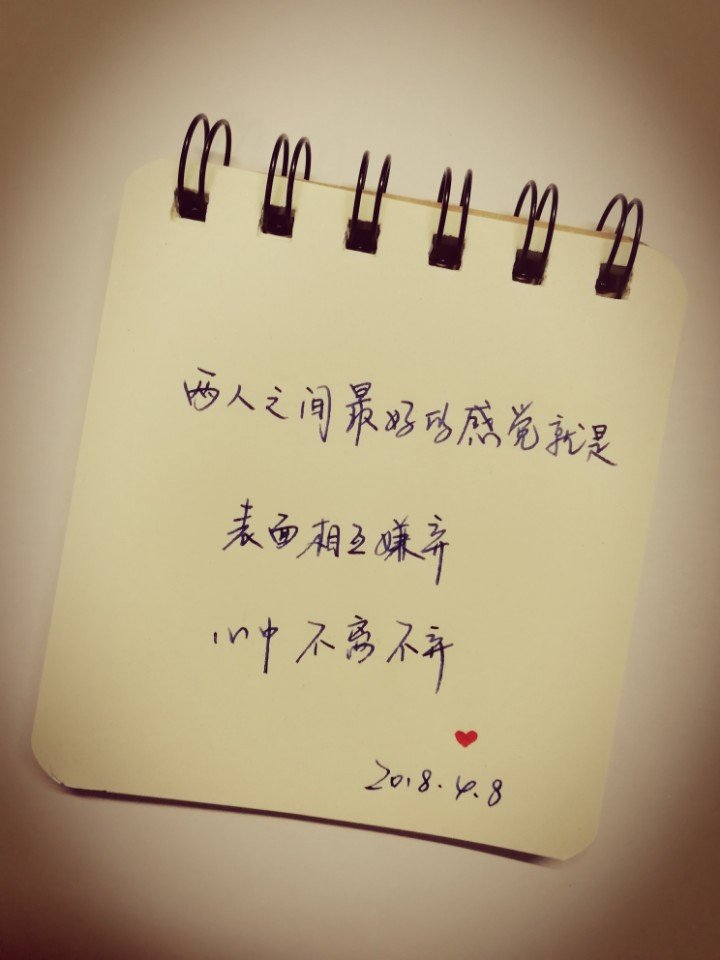 两人之间最好的感觉就是
表面相互嫌弃
心中不离不弃
2018.4.8